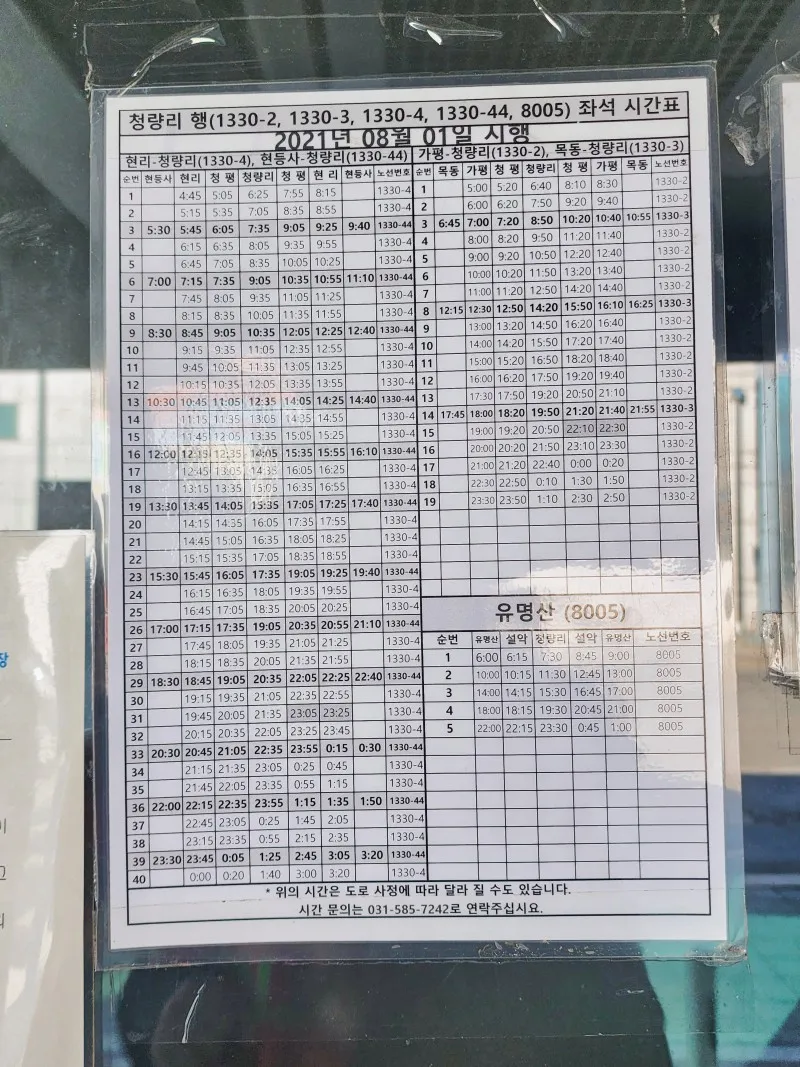 청량리 행(1330-2, 1330-3, 1330-4, 1330-44, 8005) 좌석 시간표
2021년 08월 01일 시행
현리-청량리(1330-4), 현등사-청량리(1330-44)
순번 현등사 현리 청평 청량리 청평 현리 현등사 노선번호
1 4:45 5:05 6:25 7:55 8:15 1330-4
2 5:15 5:35 7:05 8:35 8:55 1330-4
3 5:30 5:45 6:05 7:35 9:05 9:25 9:40 1330-44
4 6:15 6:35 8:05 9:35 9:55 1330-4
5 6:45 7:05 8:35 10:05 10:25 1330-4
6 7:00 7:15 7:35 9:05 10:35 10:55 11:10 1330-44
7 7:45 8:05 9:35 11:05 11:25 1330-4
8 8:15 8:35 10:05 11:35 11:55 1330-4
9 8:30 8:45 9:05 10:35 12:05 12:25 12:40 1330-44
10 9:15 9:35 11:05 12:35 12:55 1330-4
11 9:45 10:05 11:35 13:05 13:25 1330-4
12 10:15 10:35 12:05 13:35 13:55 1330-4
13 10:30 10:45 11:05 12:35 14:05 14:25 14:40 1330-44
14 11:15 11:35 13:05 14:35 14:55 1330-4
15 11:45 12:05 13:35 15:05 15:25 1330-4
16 12:00 12:15 12:35 14:05 15:35 15:55 16:10 1330-44
17 12:45 13:05 14:35 16:05 16:25 1330-4
18 13:15 13:35 15:05 16:35 16:55 1330-4
19 13:30 13:45 14:05 15:35 17:05 17:25 17:40 1330-44
20 14:15 14:35 16:05 17:35 17:55 1330-4
21 14:45 15:05 16:35 18:05 18:25 1330-4
22 15:15 15:35 17:05 18:35 18:55 1330-4
23 15:30 15:45 16:05 17:35 19:05 19:25 19:40 1330-44
24 16:15 16:35 18:05 19:35 19:55 1330-4
25 16:45 17:05 18:35 20:05 20:25 1330-4
26 17:00 17:15 17:35 19:05 20:35 20:55 21:10 1330-44
27 17:45 18:05 19:35 21:05 21:25 1330-4
28 18:15 18:35 20:05 21:35 21:55 1330-4
29 18:30 18:45 19:05 20:35 22:05 22:25 22:40 1330-44
30 19:15 19:35 21:05 22:35 22:55 1330-4
31 19:45 20:05 21:35 23:05 23:25 1330-4
32 20:15 20:35 22:05 23:25 23:45 1330-4
33 20:30 20:45 21:05 22:35 23:55 0:15 0:30 1330-44
34 21:15 21:35 23:05 0:25 0:45 1330-4
35 21:45 22:05 23:35 0:55 1:15 1330-4
36 22:00 22:15 22:35 23:55 1:15 1:35 1:50 1330-44
37 22:45 23:05 0:25 1:45 2:05 1330-4
38 23:15 23:35 0:55 2:15 2:35 1330-4
39 23:30 23:45 0:05 1:25 2:45 3:05 3:20 1330-44
40 0:00 0:20 1:40 3:00 3:20 1330-4
가평-청량리(1330-2), 목동-청량리(1330-3)
순번 목동 가평 청평 청량리 청평 가평 목동 노선번호
1 5:00 5:20 6:40 8:10 8:30 1330-2
2 6:00 6:20 7:50 9:20 9:40 1330-2
3 6:45 7:00 7:20 8:50 10:20 10:40 10:55 1330-3
4 8:00 8:20 9:50 11:20 11:40 1330-2
5 9:00 9:20 10:50 12:20 12:40 1330-2
6 10:00 10:20 11:50 13:20 13:40 1330-2
7 11:00 11:20 12:50 14:20 14:40 1330-2
8 12:15 12:30 12:50 14:20 15:50 16:10 16:25 1330-3
9 13:00 13:20 14:50 16:20 16:40 1330-2
10 14:00 14:20 15:50 17:20 17:40 1330-2
11 15:00 15:20 16:50 18:20 18:40 1330-2
12 16:00 16:20 17:50 19:20 19:40 1330-2
13 17:30 17:50 19:20 20:50 21:10 1330-2
14 17:45 18:00 18:20 19:50 21:20 21:40 21:55 1330-3
15 19:00 19:20 20:50 22:10 22:30 1330-2
16 20:00 20:20 21:50 23:10 23:30 1330-2
17 21:00 21:20 22:40 0:00 0:20 1330-2
18 22:30 22:50 0:10 1:30 1:50 1330-2
19 23:30 23:50 1:10 2:30 2:50 1330-2
유명산 (8005)
순번 유명산 설악 청량리 설악 유명산 노선번호
1 6:00 6:15 7:30 8:45 9:00 8005
2 10:00 10:15 11:30 12:45 13:00 8005
3 14:00 14:15 15:30 16:45 17:00 8005
4 18:00 18:15 19:30 20:45 21:00 8005
5 22:00 22:15 23:30 0:45 1:00 8005
* 위의 시간은 도로 사정에 따라 달라 질 수도 있습니다.
시간 문의는 031-585-7242로 연락주십시요.
장